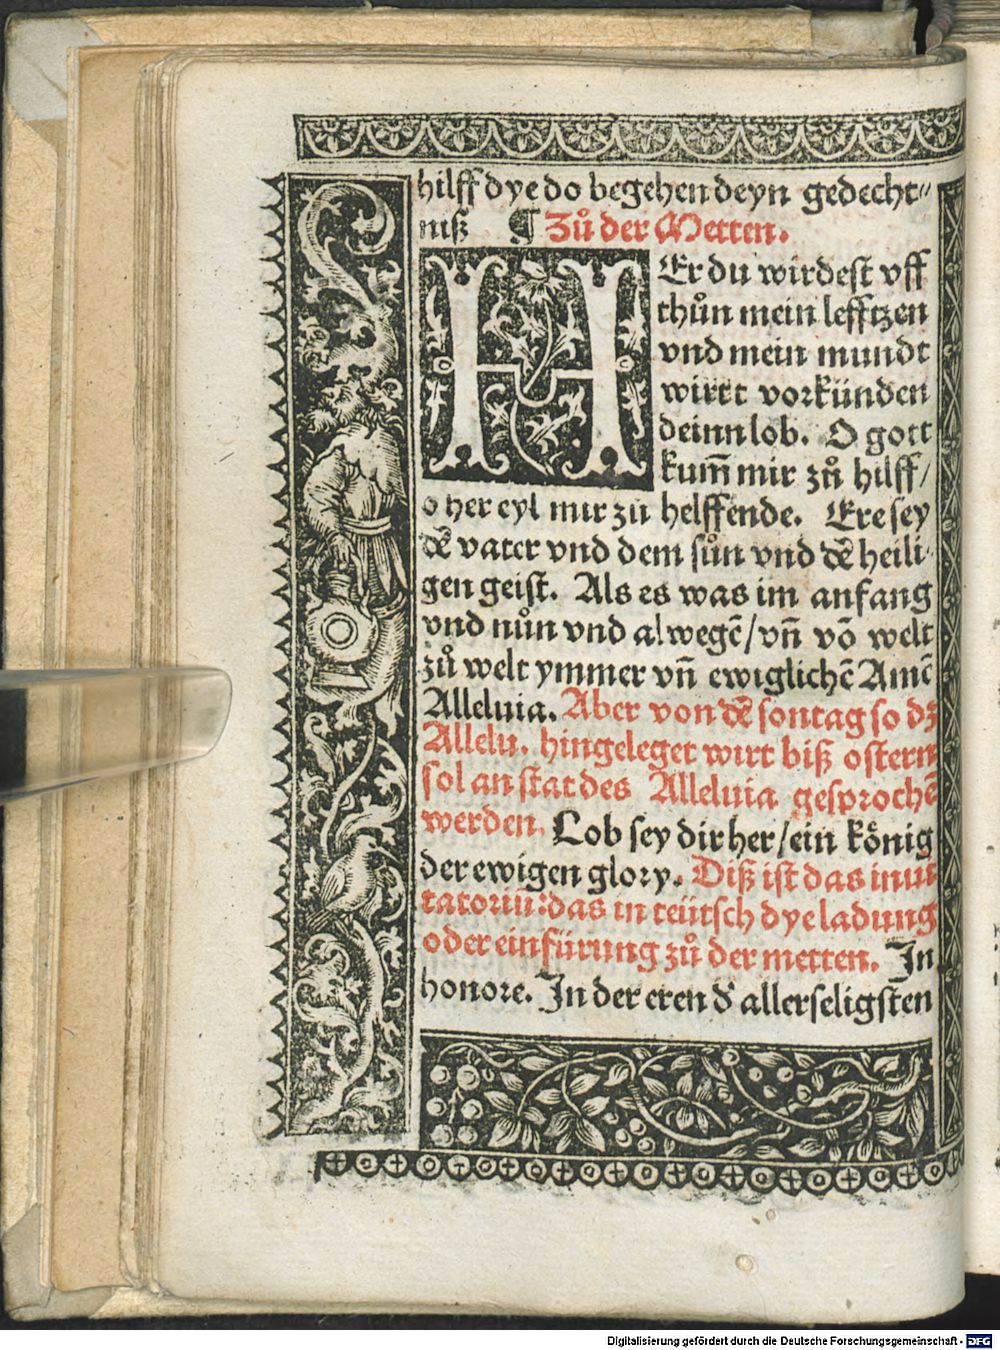 hilff dye do begehen deyn gedecht⸗
niß ¶ Zů der Metten.
HEr du wirdest vff
thůn mein lefftzen
vnd mein mundt
wirt vorkünden
deinn lob. O gott
kum̃ mir zů hilff/
o her eyl mir zů helffende. Ere sey
dẽ vater vnd dem sůn vnd dẽ heili⸗
gen geist. Als es was im anfang
vnd nůn vnd alwegẽ/vñ võ welt
zů welt ymmer vñ ewiglichẽ Amẽ
Alleluia. Aber von dẽ sontag so dz
Allelu. hingeleget wirt biß ostern
sol an stat des Alleluia gesprochẽ
werden. Lob sey dir her/ein kőnig
der ewigen glory. Diß ist das inui⸗
tatoriũ: das in teütsch dye ladung
oder einfürung zů der metten. In
honore. In der eren d̕ allerseligsten
Digitalisierung gefördert durch die Deutsche Forschungsgemeinschaft - DFG